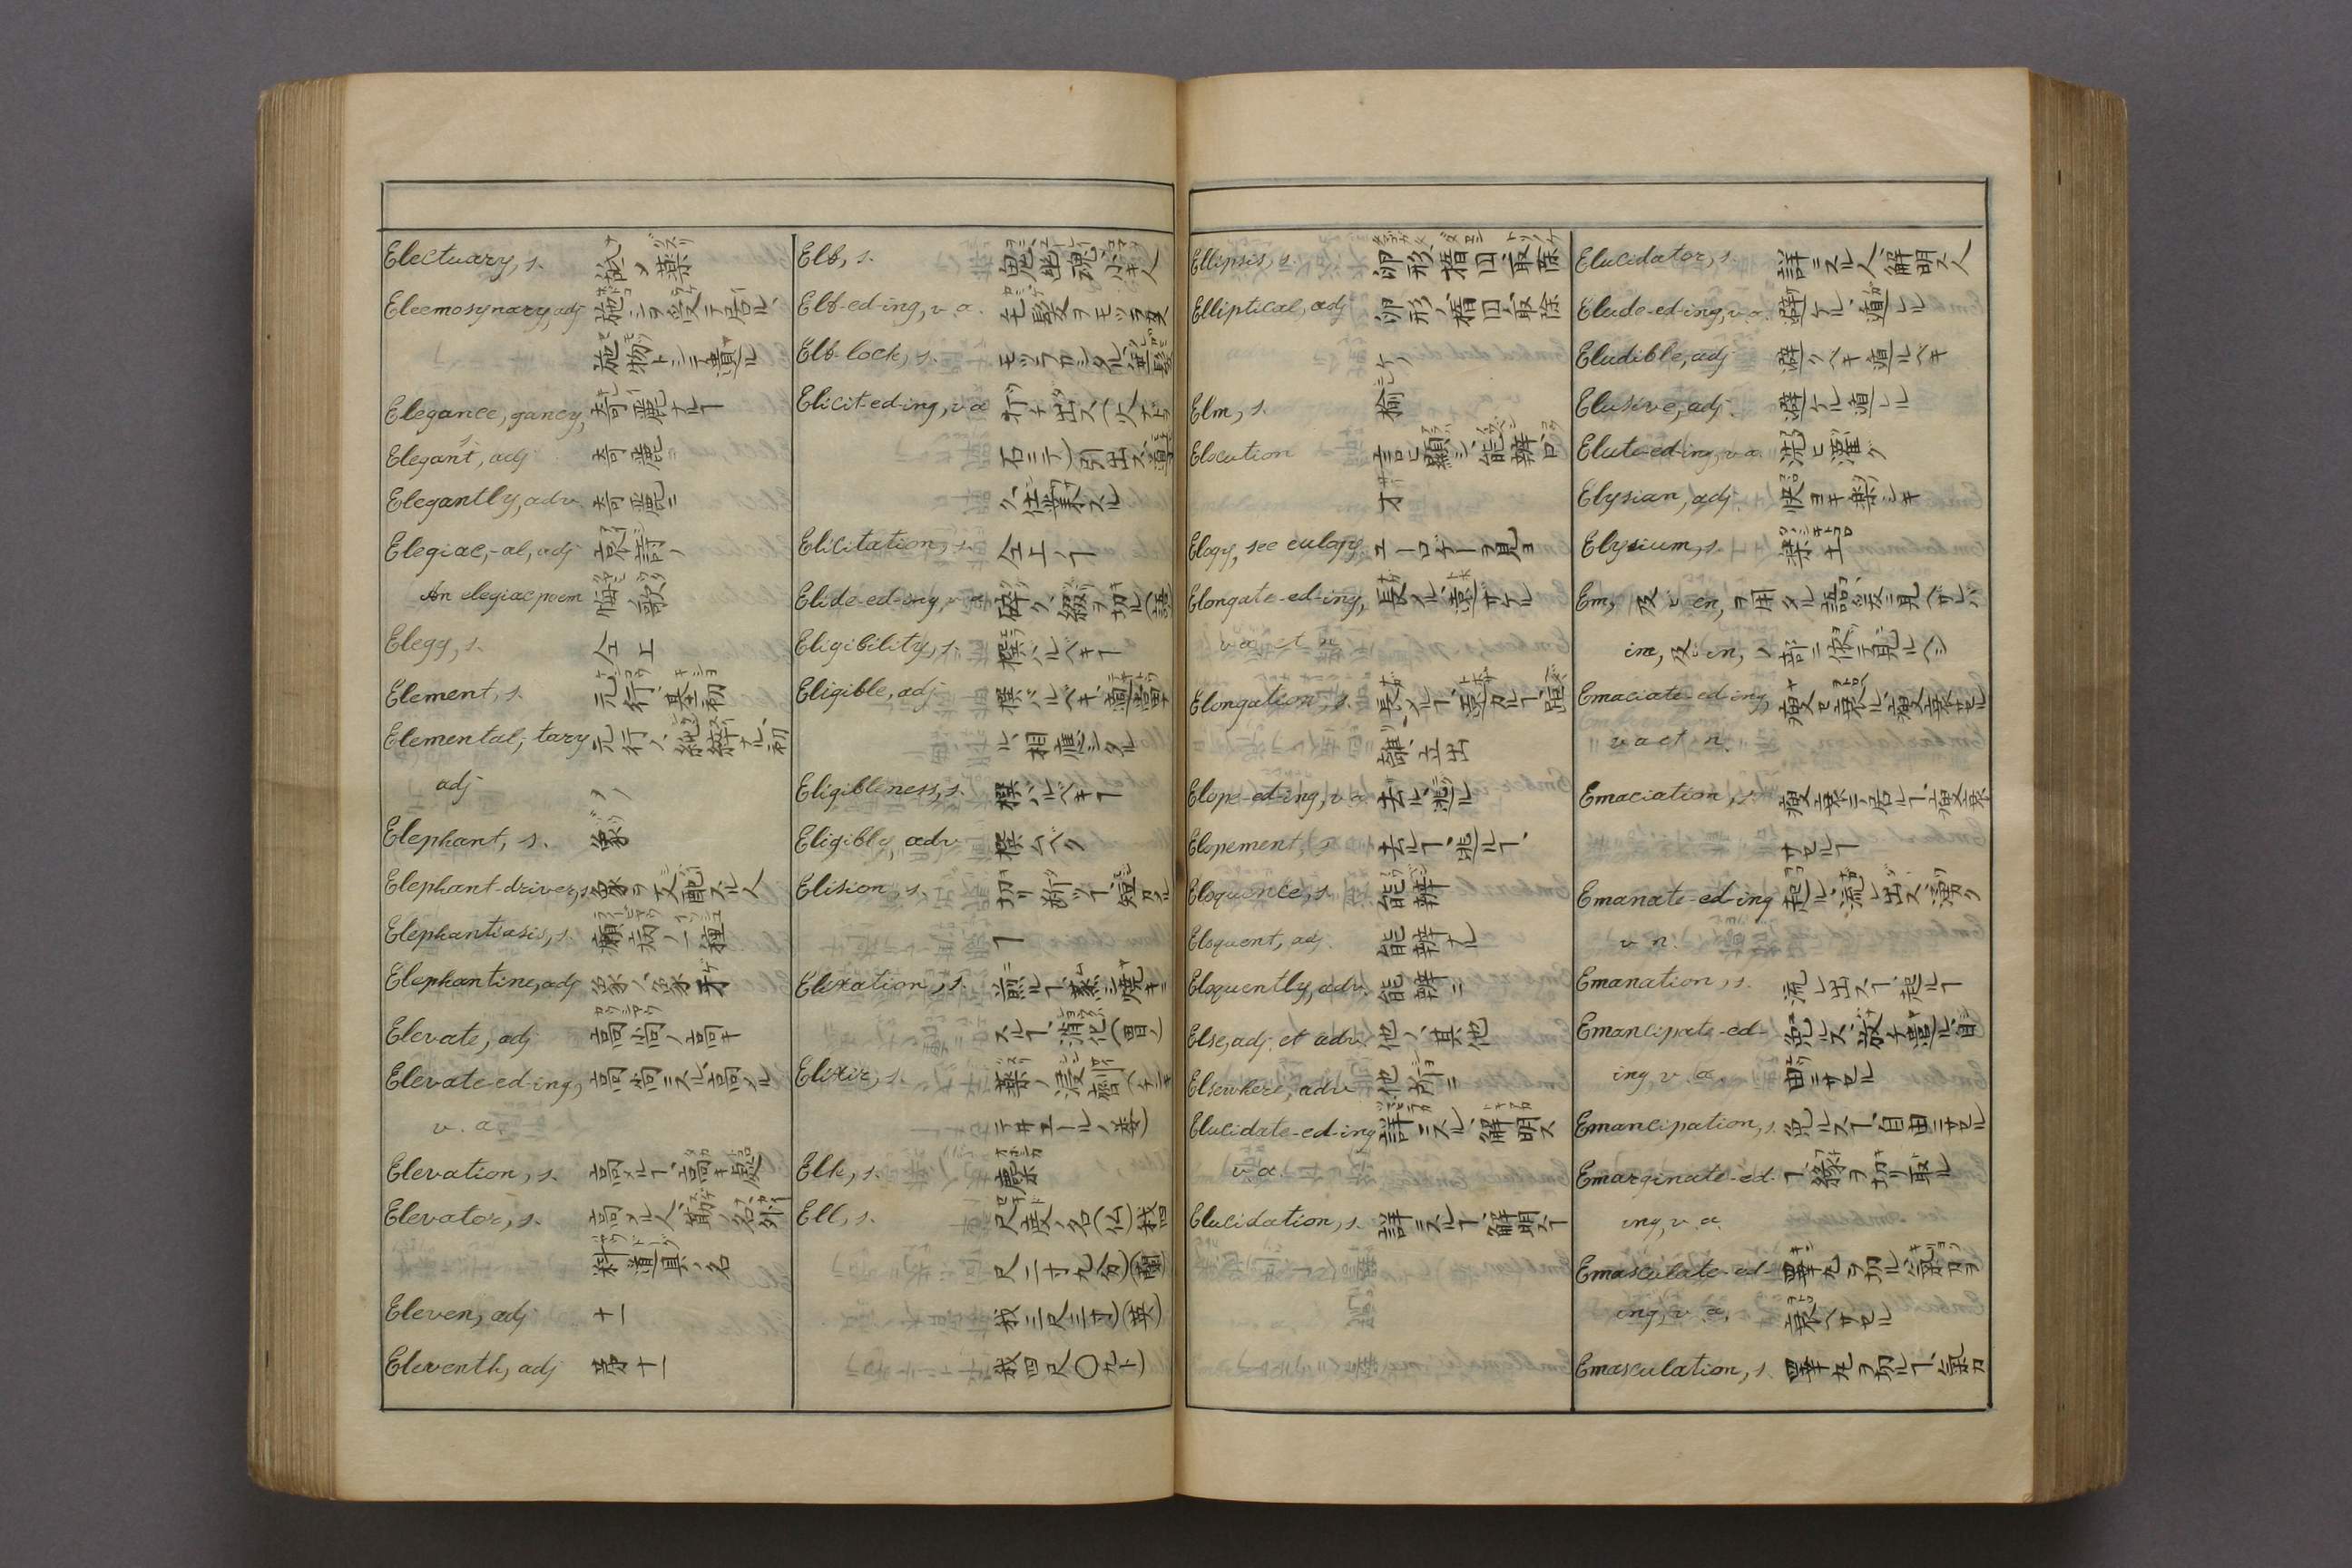 Electuary, s.
Eleemosynary, adj 施シヲ受テ居ル、
施物トシテ遺ル
Elegance, gancy, 奇麗ナルヿ
s.
Elegant, adj 奇麗ニ
Elegantly, adv. 奇麗ニ
Elegiac,-al, adj 哀詩ノ
An elegiac poem 悔歌
Elegy, s. 仝上
Element, s. 元行、基初
Elemental,- tary 元行ノ、純粋ナル、初
adj
Elephant, s. 象
Elephant-driver, s. 象ヲ支配スル人
Elephantiasis, s. 癩病ノ一種
Elephantine, adj 象ノ、象牙
Elevate, adj 高尚ノ、高キ
Elevate-ed-ing, 高尚ニスル、高メル
v. a.
Elevation, s. 高メルヿ、高キ處
Elevator, s. 高メル人、筋ノ名、外
科道具ノ名
Eleven, adj 十一
Eleventh, adj 第十一
Elf, s. 鬼、幽魂、小キ人
Elf-ed-ing, v. a. 毛髪ヲモツラカス
Elf-lock, s. モツラカシタル髪
Elicit-ed-ing, v a 打チ出ス(火ナド
石ニテ)、引出ス、
Elicitation, s. 仝上ノヿ
Elide-ed-ing, v a 砕ク、綴ヲ切ル(語
Eligibility, s. 撰バルベキヿ
Eligible, adj 撰バルベキ、適當
ル、相應シタル
Eligibleness, s. 撰バルベキヿ
Eligibly, adv 撰ムベク
Elision, s. 切リ断ツヿ、短カル
ヿ
Elixation, s. 煎ルヿ、蒸シ焼キニ
スルヿ、消化(胃ノ)
Elixir, s. 薬ノ浸劑
Elk, s.
Ell, s. 尺度ノ名(仏)我四
尺二寸九分)(蘭)
我二尺三寸)(英)
我四尺〇九ト)
Ellipsis, s. 卵形、楕円、取除
Elliptical, adj 卵形ノ、楕円、取除
ケノ
Elm, s. 楡
Elocution 言ヒ顯シ、能辨、口
才
Elogy, see eulogy. ユーロヂーヲ見ヨ
Elongate-ed-ing, 長メル、遠サケル
v a et n
Elongation, s. 長メルヿ、遠カルヿ、距
離、立出
Elope-ed-ing, v a. 去ル、逃ル
Elopement, s 去ルヿ、逃ルヿ、
Eloquence, s. 能辨
Eloquent, adj. 能辨ナル
Eloquently, adv. 能辨ニ
Else, adj. et adv. 他ノ、其他
Elsewhere, adv 他所ニ
Elucidate-ed-ing 詳ニスル、解明ス
v a.
Elucidation, s. 詳ニスルヿ、解明スヿ
Elucidator, s. 詳ニスル人、解明ス人
Elude-ed-ing, v a. 避ケル、遁レル
Eludible, adj 避クベキ、遁ルベキ
Elusive, adj. 避ケル、遁レル
Elute-ed-ing, v a. 洗ヒ濯グ
Elysian, adj. 快ヨキ、楽シキ
Elysium, s. 楽土
Em, 及ビ en, ヲ用タル語、爰ニ見ヘザレバ
im, 及ビ in, ノ部ニ依テ見ルベシ
Emaciate-ed-ing, 痩セ衰ル、痩衰サセル
v a et n.
Emaciation, s. 痩衰テ居ルヿ、痩衰
サセルヿ
Emanate-ed-ing 起ル、流レ出ス、滞ク
v n.
Emanation, s. 流レ出スヿ、起ルヿ
Emancipate-ed- 免ルス、放チ遣ル、自
ing, v. a. 由ニサセル
Emancipation, s. 免ルスヿ、自由ニサセル
Emarginate-ed- ヿ、縁ヲ切リ取ル
ing, v. a.
Emasculate-ed- 睾丸ヲ切ル、氣力ヲ
ing, v a. 衰ヘサセル
Emasculation, s. 睾丸ヲ切ルヿ、氣力